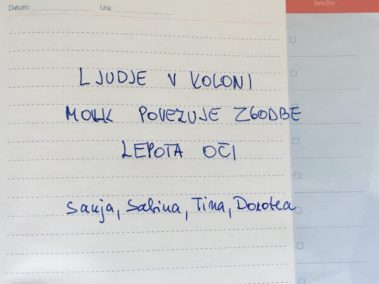 Datum: Ura: Beležke
LJUDJE V KOLONI
MOLK POVEZUJE ZGODBE
LEPOTA OČI
Sanja, Sabina, Tina, Dorotea